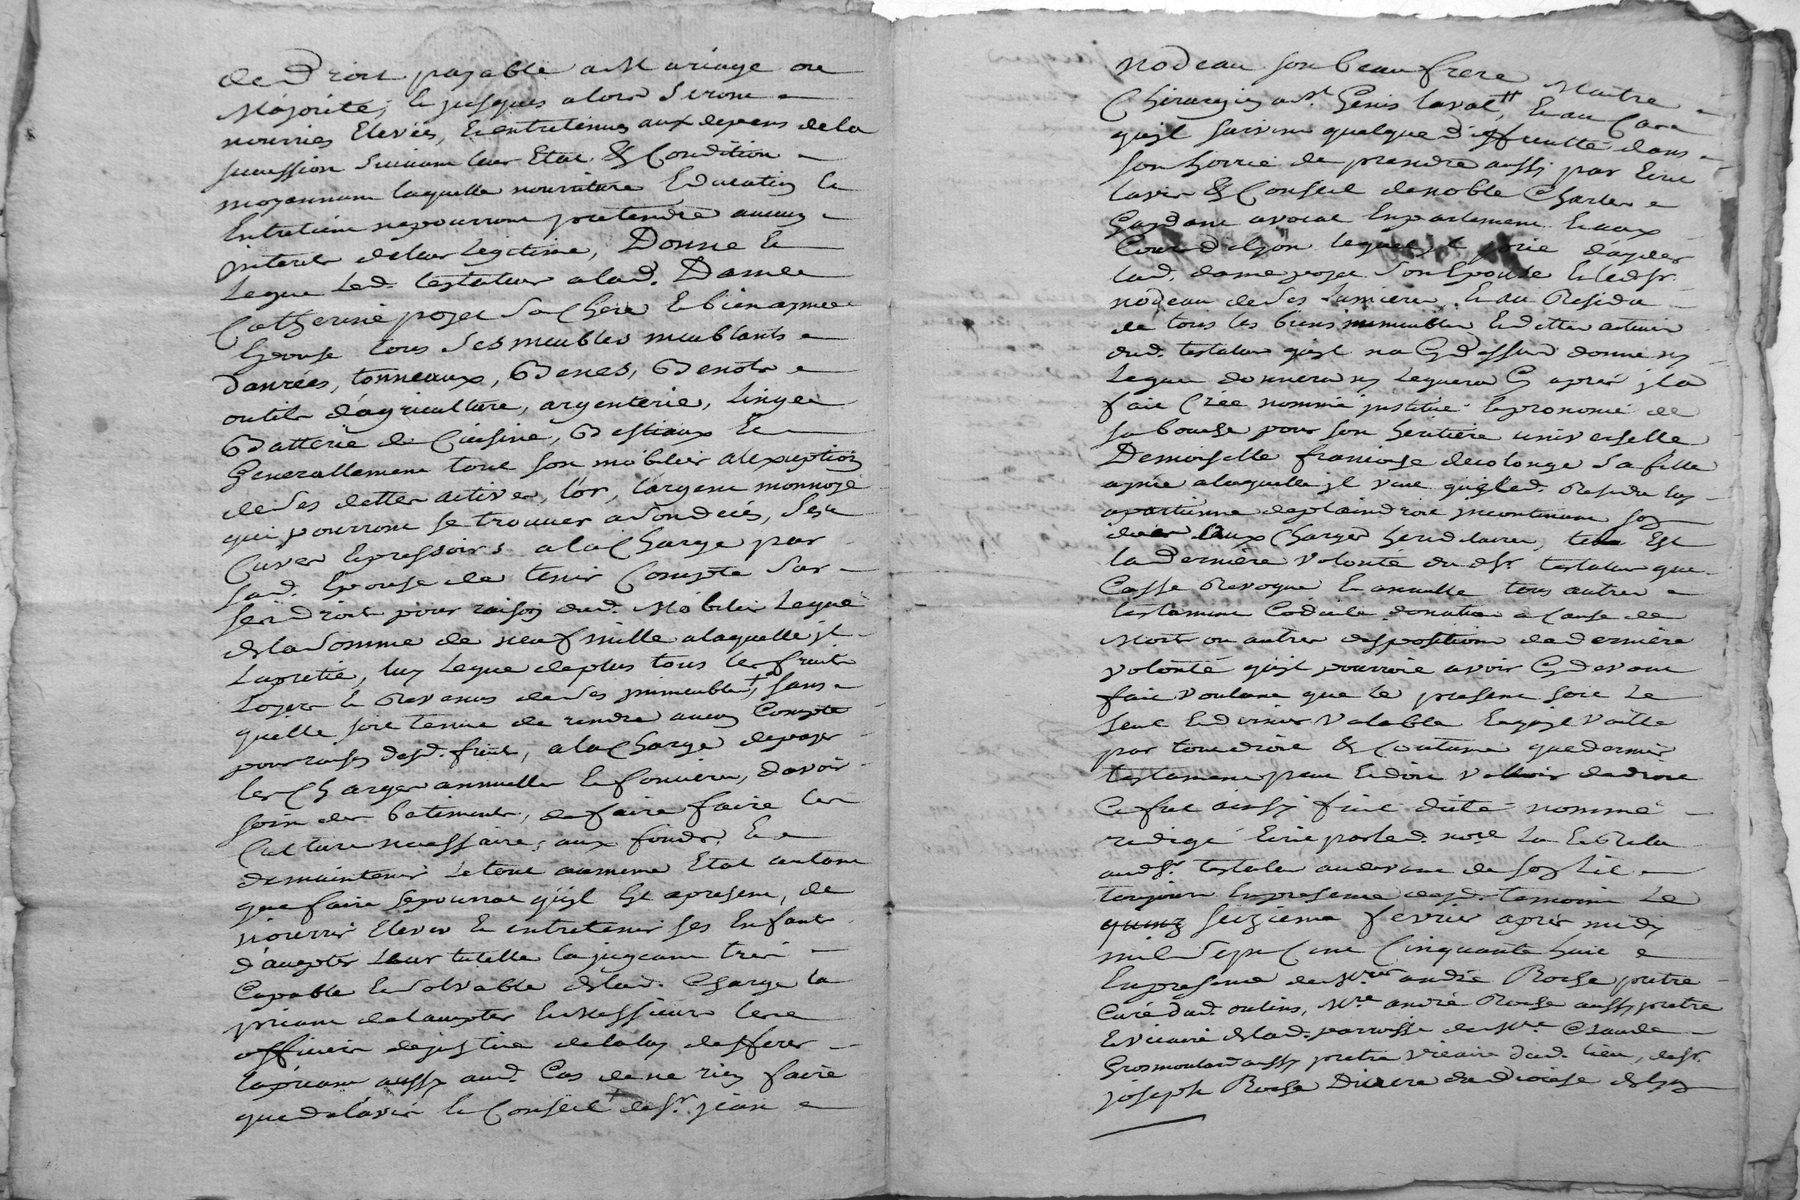 de Droit payable a Mariage ou
Majorité, & jusques alors seront
nourries Elevées, & entretenues aux depens de la
succession suivant leur Etat & Condition
moyennant laquelle nourriture Education &
Entretien ne pourront pretendre aucuns
interets de leur legitime, Donne &
Legue led. testateur a lad. Dame
Catherine sa Chere & bien aymée
Epouse tous ses meubles meublants
danrées, tonneaux, Benes, Benots
outils d'agriculture, argenterie, Linge
Batterie de Cuisine, Bestiaux &
Generallement tout son mobilier a lexception
de ses dettes actives, l'or, l'argent monnoyé
qui pourront se trouver a son decés, ses
Cuves & pressoirs a la Charge par
lad. Epouse de tenir Compte sur
ses droits pour raison dud. Mobilier Legué
de la somme de neuf mille a laquelle il
Lapretié, luy Legue de plus tous les fruits
Loyers & Revenus de ses immeubles, sans
quelle soit tenue de rendre aucun Compte
pour raison desd. fruits, a la Charge de payer
les Charges annuelles & foncieres, davoir
soin des batiments, de faire faire les
Culture necessaires, aux fonds, &
de maintenir le tout au meme Etat autant
que faire se pourrat qu'il Est a present, de
nourrir Elever & entretenir ses Enfants
d'accepter Leur tutelle la jugeant trés
Capable & solvable de lad. Charge la
priant de laccepter & Messieurs les
officiers de justice de la luy defferer
la priant aussy aud. Cas de ne rien faire
que de l'avis & Conseil de Sr. jean
Nodeau son beau frere Maitre
Chirurgien a St. Genis Laval, & au Cas
quil survint quelque difficulté dans
son hoirie de prendre aussy par Ecrit
lavis & Conseil de noble Charles
avocat En parlement & aux
Cours de Lyon lequel il prie d'ayder
lad. dame son Epouse & led. Sr.
Nodeau de ses Lumieres. & au Residu
de tous les biens immeubles & dettes actives
dud. testateur quil na Cy dessus donné ny
Legué donnera ny Leguera Cy aprés il a
fait Créé nommé institué & prononcé de
sa bouche pour son heritiere universelle
Demoiselle francoise decolonge sa fille
aynée a laquelle il veut quel led. Residu
apartienne de plain droit incontinent
Charges hereditaires, telle Est
la derniere volonté dud. Sr. testateur que
Casse Revoque & annulle tous autres
testaments Codicile donation a Cause de
Mort ou autres dispositions de derniere
volonté quil pourroit avoir Cy devant
fait voulant que le present soit le
seul & dernier valable & quil vaille
par tout droit & Coutume que dernier
testament peut & doit valloir de droit
Ce fut ainsy fait dicté nommé
redigé Ecrit par led. nore. Lu & Relu
aud. Sr. testateur au devant de son lit
toujours En presence desd. temoins Le
quinz seizieme fevrier aprés midy
mil sept Cent Cinquante huit
En presence de Mre. andré Roche pretre
Curé dud. oulins, Mre andré Roche aussy pretre
& vicaire de lad. parroisse de Mre. Claude
Grosmouland aussy pretre vicaire dud. lieu, de Sr.
joseph Roche Diacre du Diocese de Lyon